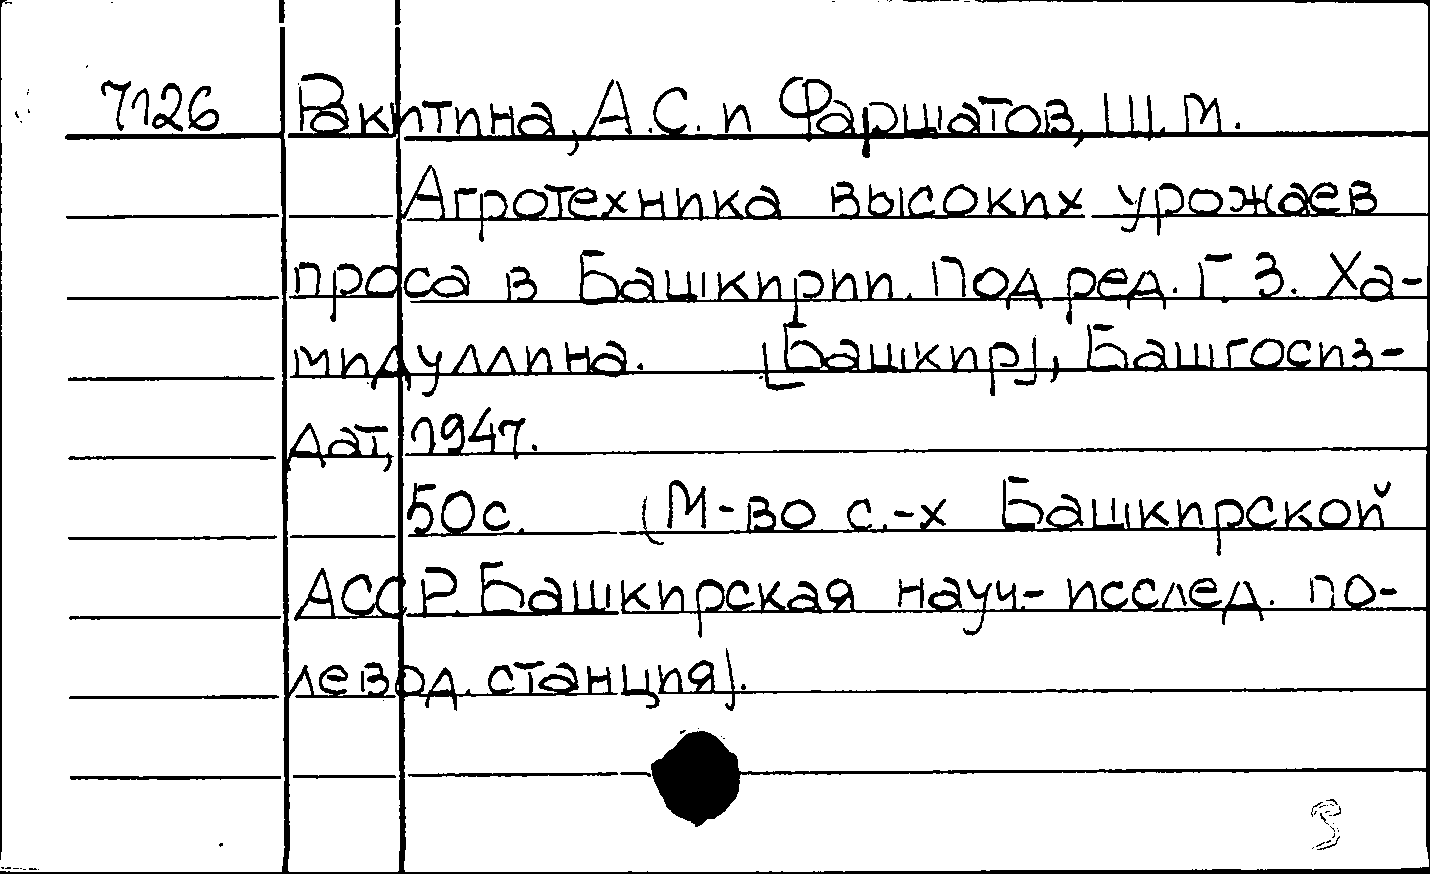 7126 Ракитина, А.С. и Фаршатов, Ш.М.
Агротехника высоких урожаев
проса в Башкирии. Под ред. Г.З. Ха-
мидуллина. [Башкир], Башгосиз-
дат, 1947.
50с. (М-во с.-х Башкирской
АССР. Башкирская науч-исслед. по-
левод. станция).